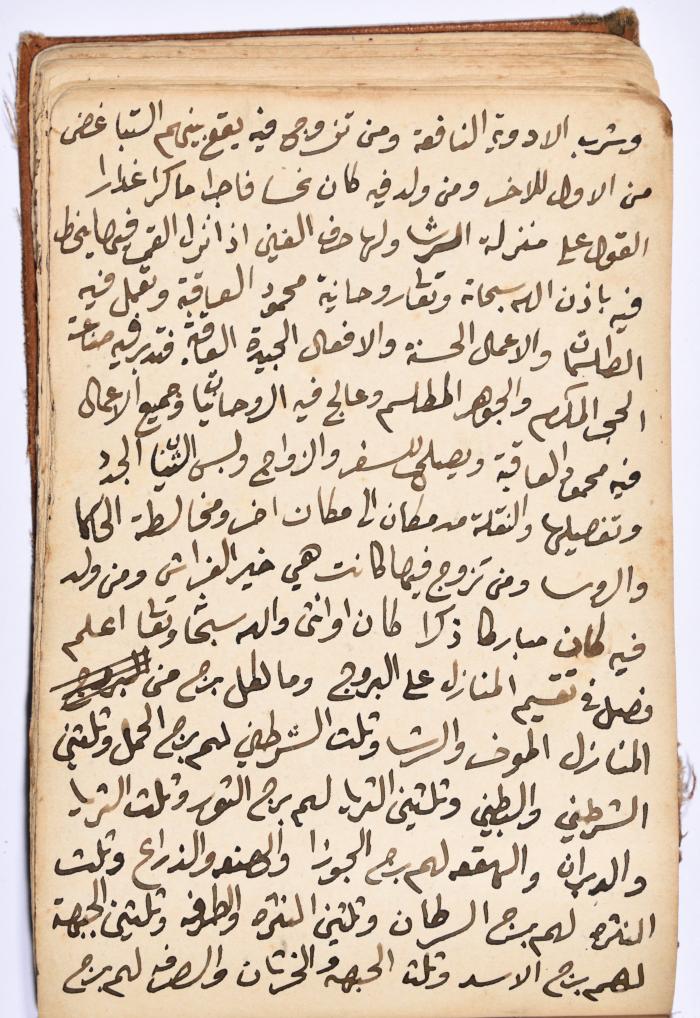 وشرب الادوية النافعة ومن تزوج فيه يقع بينهم التباغض
من الاول للاخر ومن ولد فيه كان نحسا فاجرا ماكرا غدارا
القول على منزلة الرشا ولها حرف الغين اذا نزل القمر فيها ينحط
فيه باذن الله سبحانه وتعا روحانية محمود العاقبة وتعمل فيه
الطلسمات والاعمال الحسنة والافعال الجيدة العاقبة فتدبر فيه صناعة
الحجر المكرم والجوهر المطلسم وعالج فيه الروحانيات وجميع الاعمال
فيه محمود العاقبة ويصلح للسفر والزواج ولبس الثياب الجدد
وتفصيلها والنقلة من مكان الى مكان اخر ومخالطة الحكما
والروسا ومن تزوج فيها كانت هي خير الفراش ومن ولد
فيه كان مباركا ذكرا كان او انثى والله سبحا وتعا اعلم
فصل في تقسيم المنازل على البروج وما لكل برج من البروج
المنازل الموخر والرشا وثلث الشرطين لهم برج الحمل وثلثين
الشرطين والبطين وثلثين الثريا لهم برج الثور وثلث الثريا
والدبران والهقعه لهم برج الجوزا والهنعه والذراع وثلث
النثره لهم برج السرطان وثلثين النثره والطرفه وثلثين الجبهة
لهم برج الاسد وثلث الجبهه والخرثان والصرفه لهم برج